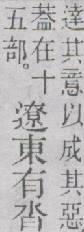 達其意以成其惡
葢在十
五部。
遼東有沓